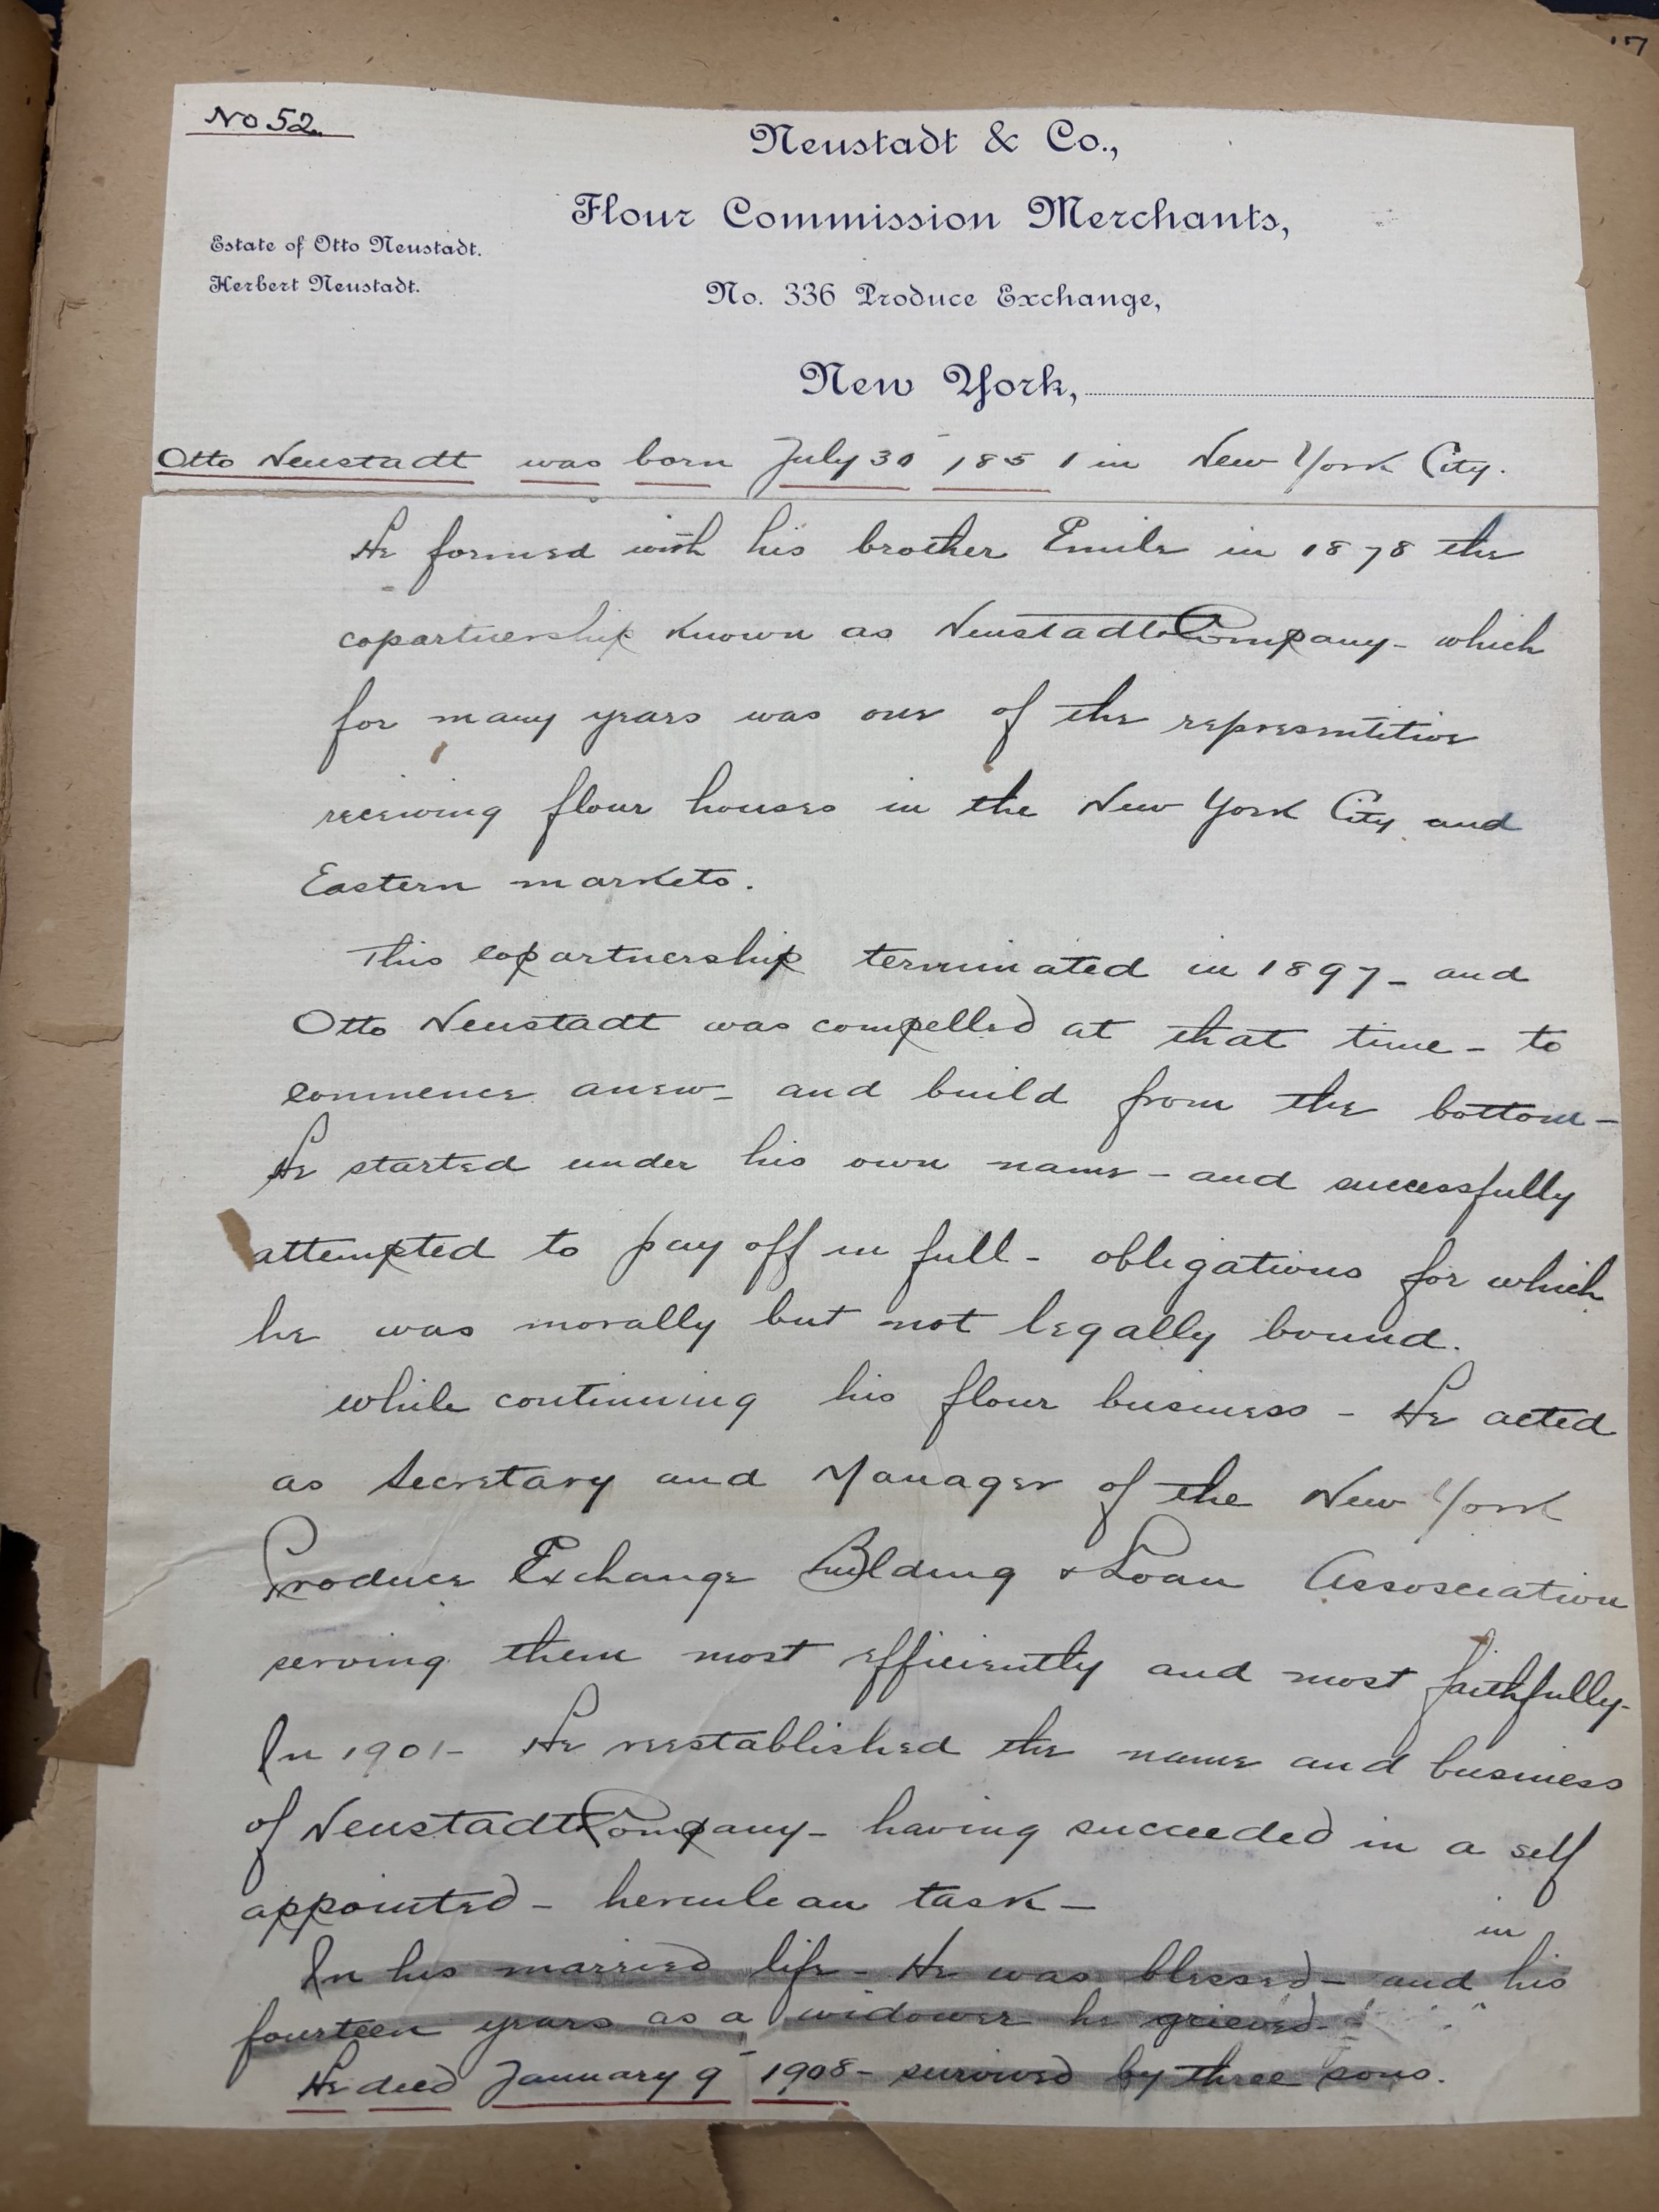 No 52.
Neustadt & Co.,
Flour Commission Merchants,
Estate of Otto Neustadt.
Herbert Neustadt.
No. 336 Produce Exchange,
New York,
Otto Neustadt was born July 30 1851 in New York City.
He formed with his brother Emile in 1878 the
copartnership known as Neustadt & Company - which
for many years was one of the represntitive
receiving flour houses in the New York City and
Eastern markets.
This copartnership terminated in 1897 - and
Otto Neustadt was compelled at that time - to
commence anew - and build from the bottom -
He started under his own name - and successfully
attempted to pay off in full - obligations for which
he was morally but not legally bound.
While continuing his flour business - He acted
as Secretary and Manager of the New York
Produce Exchange Building & Loan Assosciation
serving them most efficiently and most faithfully -
In 1901 - He reestablished the name and business
of Neustadt & Company - having succeeded in a self
appointed - herculean task -
in
In his married life - He was blessed - and his
fourteen years as a widower he grieved -
He died January 9 1908 - survived by three sons.